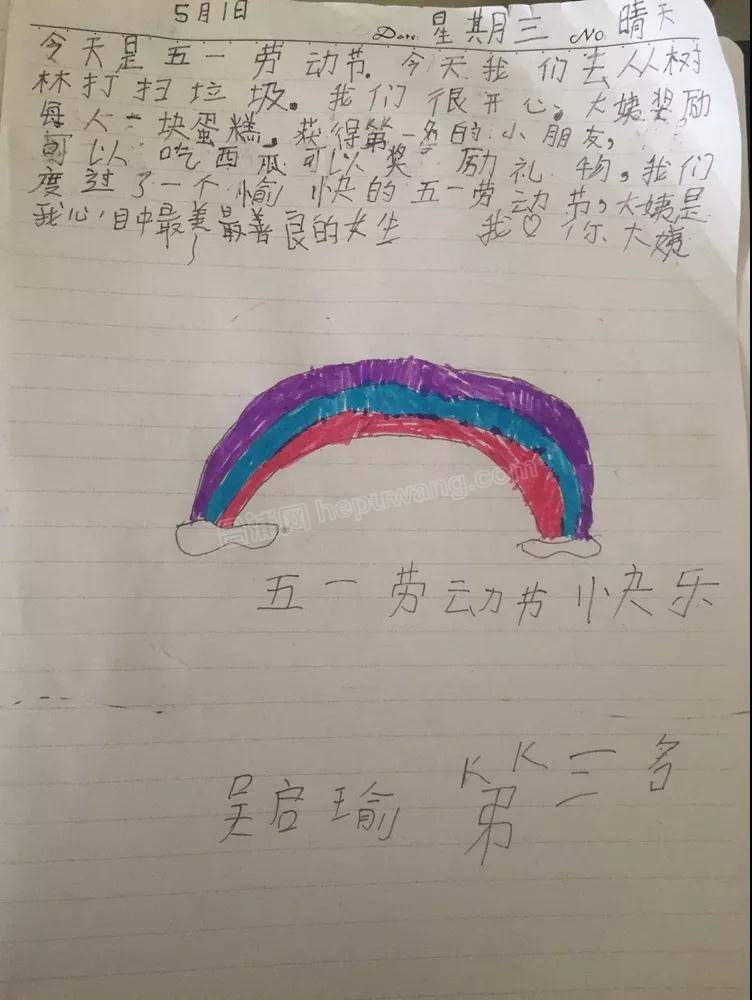 5月1日 Date: 星期三 NO: 晴天
今天是五一劳动节.今天我们去从树
林打扫垃圾.我们很开心。大姨奖励
每人二块蛋糕,获得第一名的小朋友,
可以吃西瓜可以奖励礼物,我们
度过了一个愉快的五一劳动节,大姨是
我心目中最美最善良的女生 我♡你大姨
合浦网 hepuwang.com
五一劳动节快乐
吴启瑜 第三名